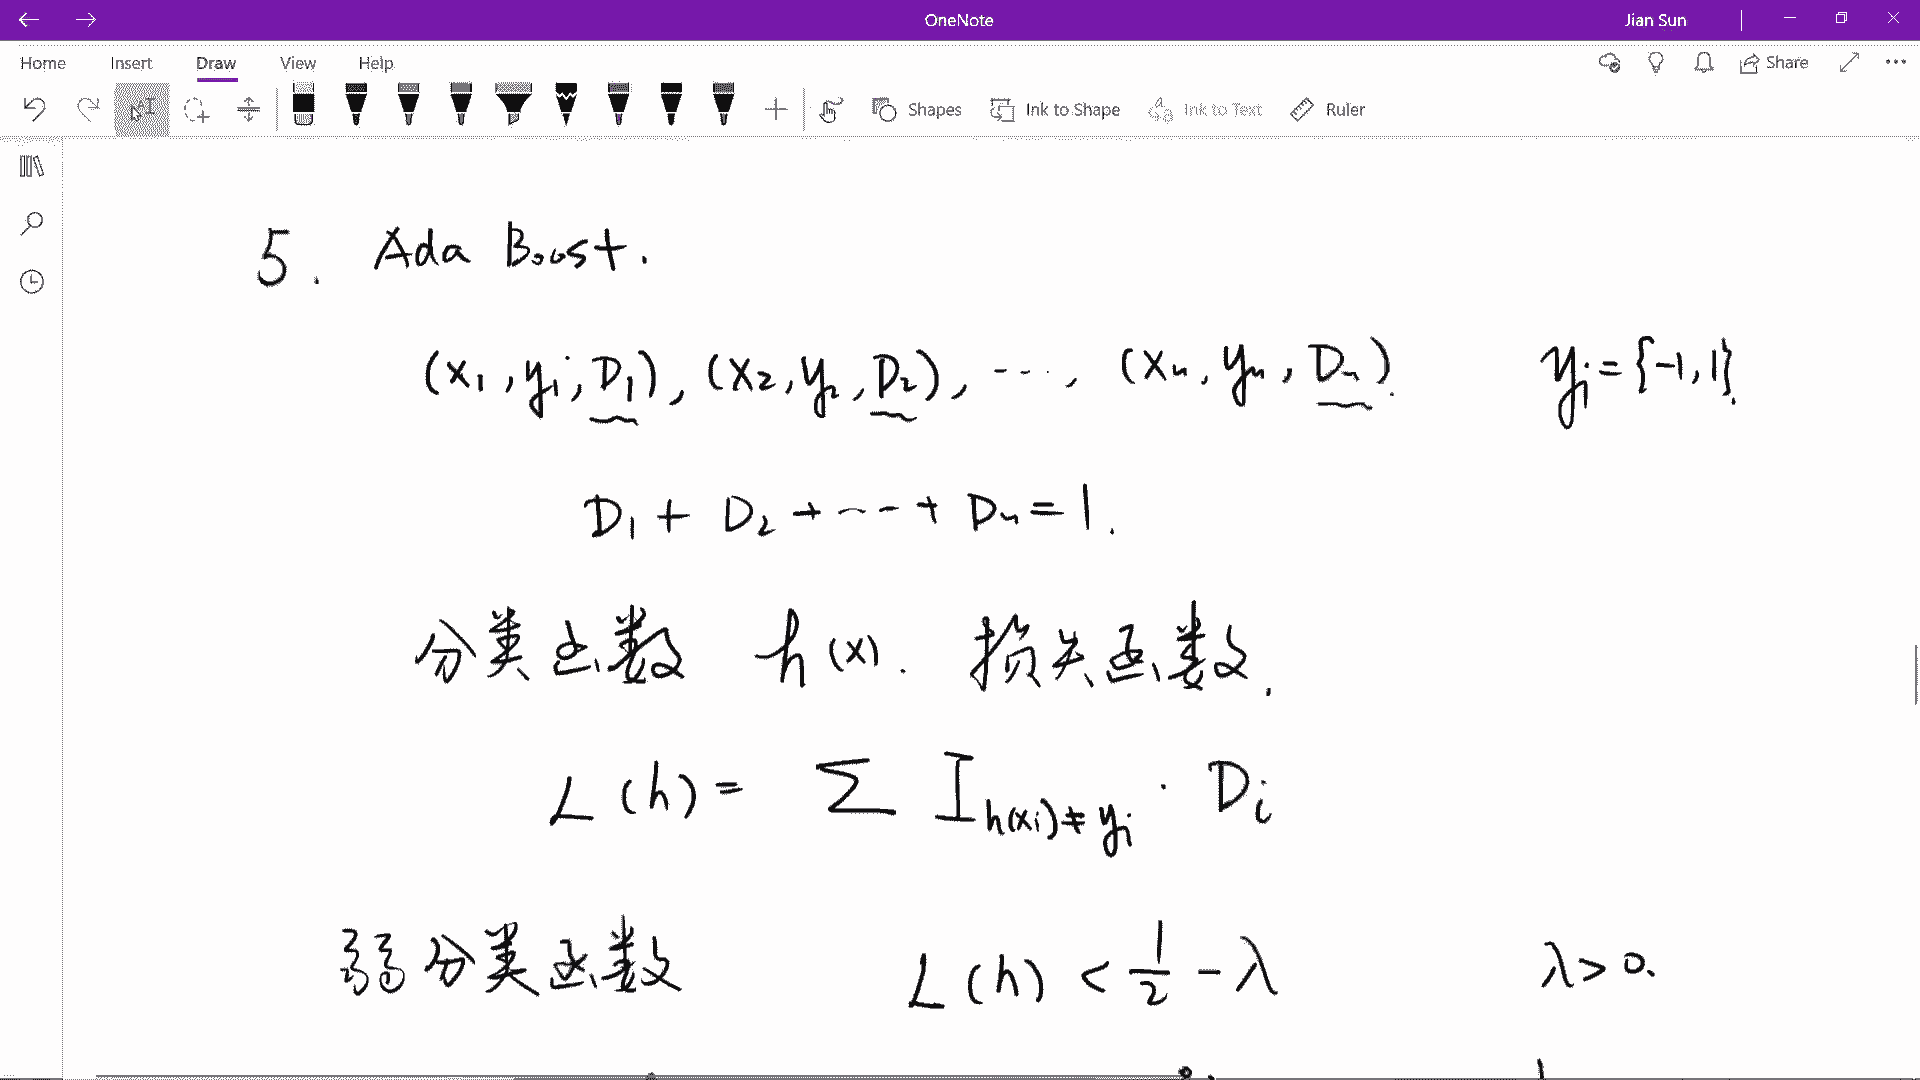 OneNote
Jian Sun
Home Insert Draw View Help
Share
Shapes Ink to Shape Ink to Text Ruler
5. Ada Boost.
(x₁, yᵢ, D₁), (x₂, y₂, D₂), ..., (xₙ, yₙ, Dₙ). yᵢ = {-1, 1}.
D₁ + D₂ + --- + Dₙ = 1.
分类函数 h(x). 损失函数.
L(h) = Σ I h(xᵢ)≠yᵢ · Dᵢ
弱分类函数 L(h) < 1/2 - λ λ > 0.